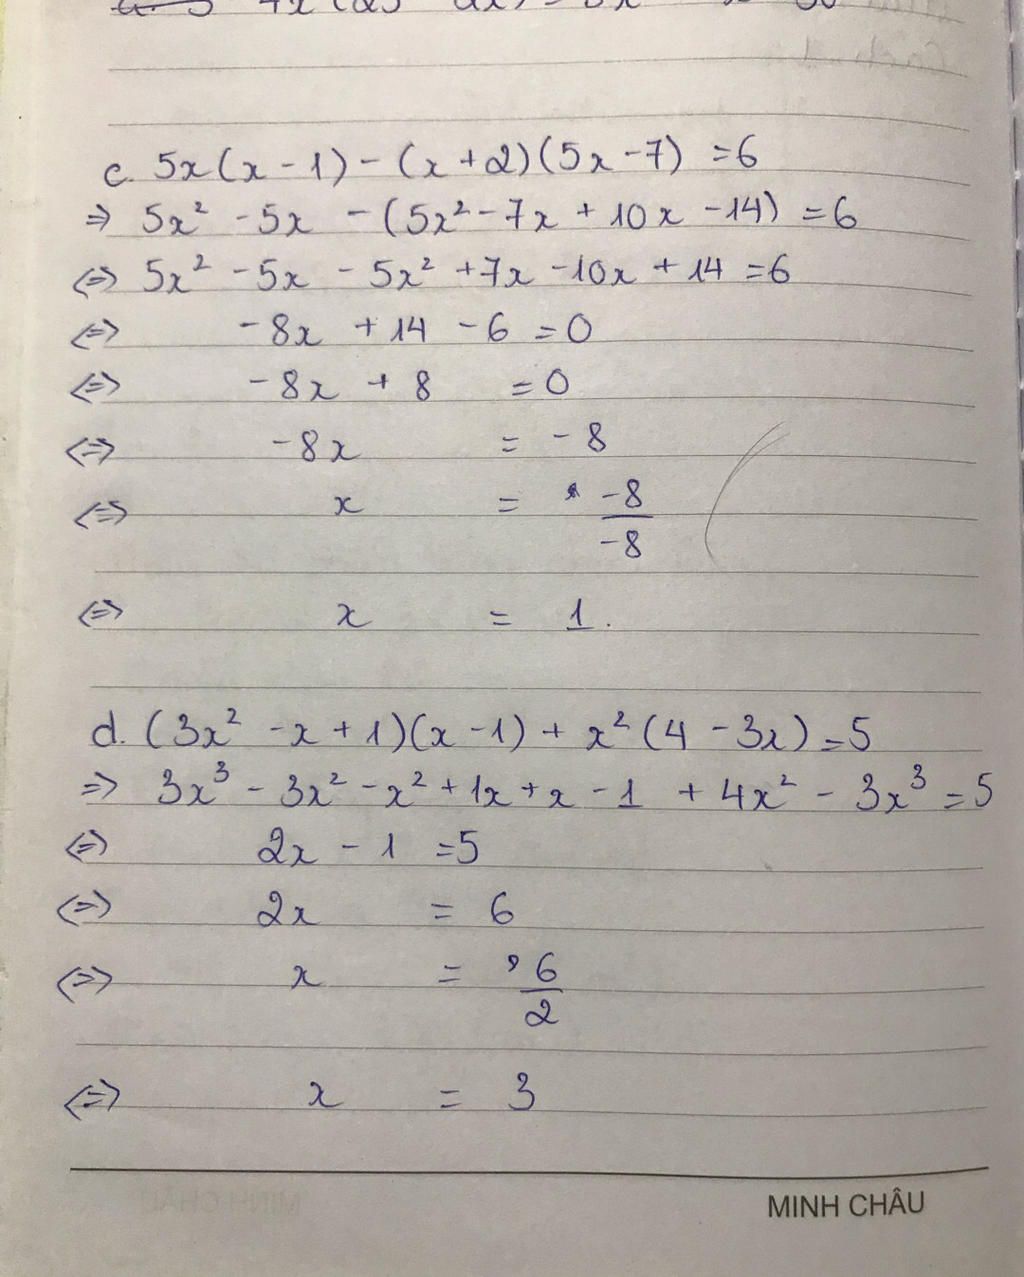 c. 5x(x - 1) - (x + 2)(5x - 7) = 6
=> 5x² - 5x - (5x² - 7x + 10x - 14) = 6
<=> 5x² - 5x - 5x² + 7x - 10x + 14 = 6
<=> -8x + 14 - 6 = 0
<=> -8x + 8 = 0
<=> -8x = -8
<=> x = -8/-8
<=> x = 1.
d. (3x² - x + 1)(x - 1) + x²(4 - 3x) = 5
=> 3x³ - 3x² - x² + 1x + x - 1 + 4x² - 3x³ = 5
<=> 2x - 1 = 5
<=> 2x = 6
<=> x = 6/2
<=> x = 3
MINH CHÂU